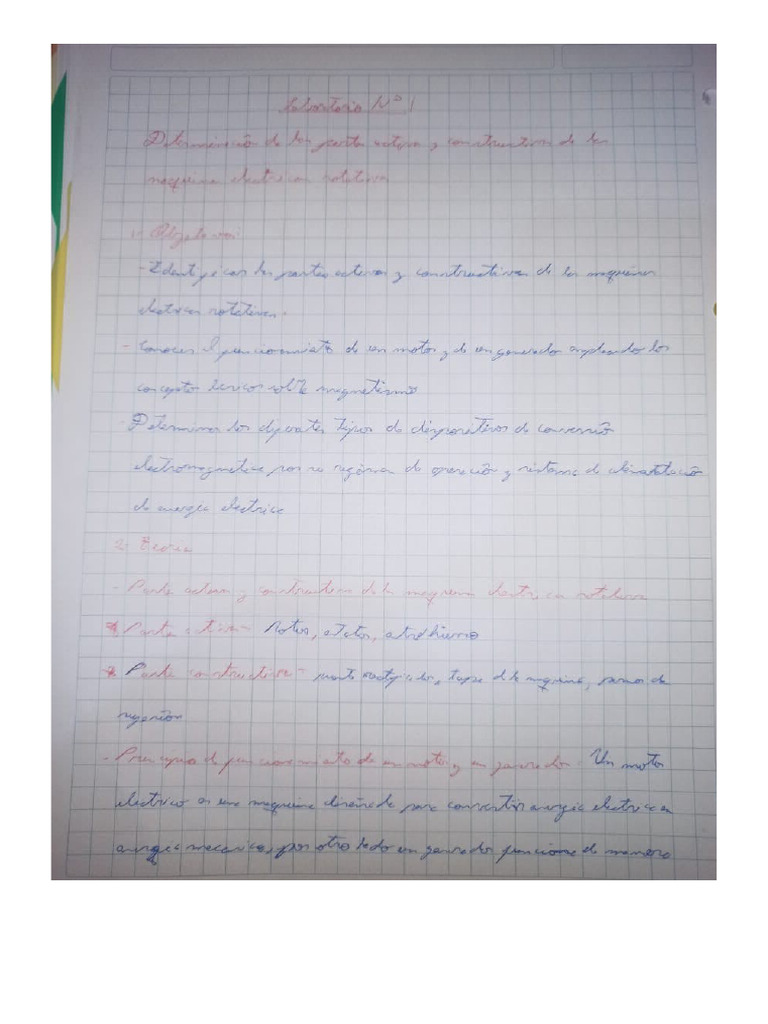 Laboratorio N° 1
Determinación de las partes activas y constructivas de las
maquinas electricas rotativas
1- Objetivos:
- Identificar las partes activas y constructivas de las maquinas
electricas rotativas.
- Conocer el funcionamiento de un motor y de un generador empleando los
conceptos teoricos sobre magnetismo
- Determinar los diferentes tipos de dispositivos de conversión
electromagnetica por su regimen de operación y sistema de alimentación
de energia electrica
2- Teoria
- Partes activas y constructivas de la maquina electrica rotativa
* Partes activas - Rotor, estator, entrehierro
* Partes constructivas - tapas de la maquina,
sujeción
- Principio de funcionamiento de un motor y un generador. Un motor
electrico es una maquina diseñada para convertir energia electrica en
energia mecanica, por otro lado un generador funciona de manera